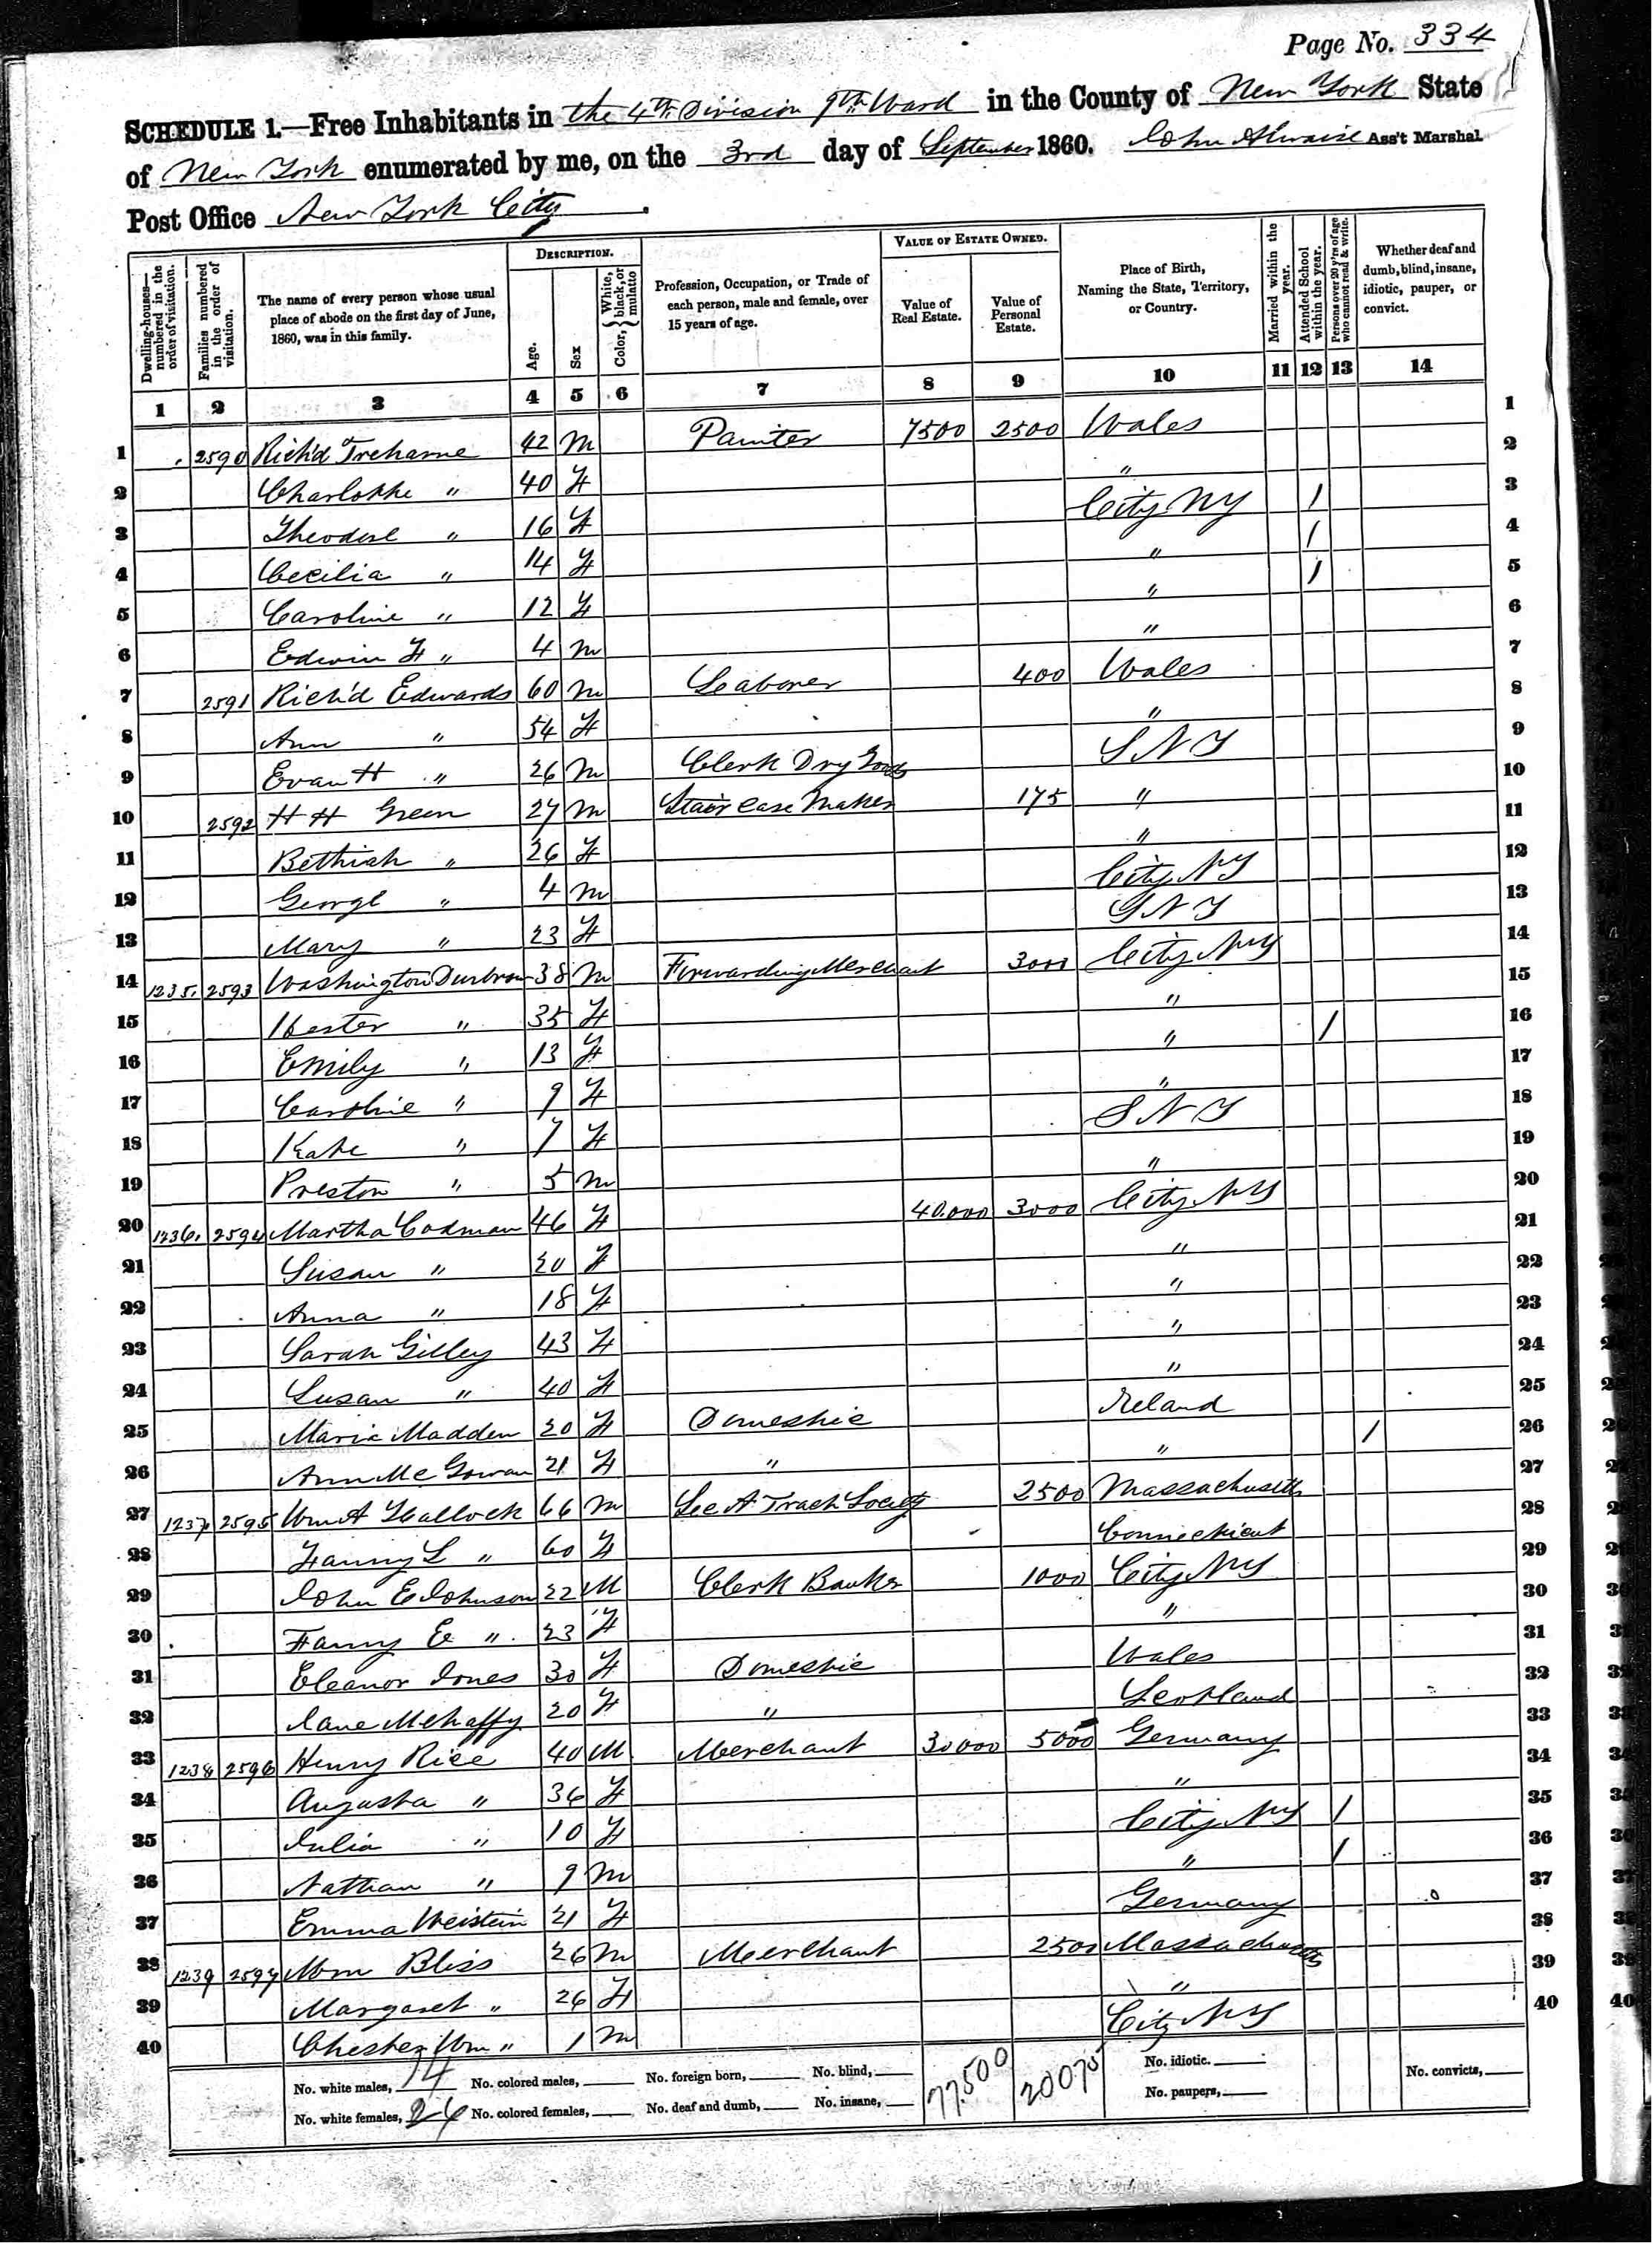 Page No. 334
SCHEDULE 1.—Free Inhabitants in the 4th Division 9th Ward in the County of New York State
of New York enumerated by me, on the 3rd day of September 1860. John Ass't Marshal.
Post Office New York City.
Dwelling-houses—numbered in the order of visitation. Families numbered in the order of visitation. The name of every person whose usual place of abode on the first day of June, 1860, was in this family. DESCRIPTION. Age. Sex Color, { White, black, or mulatto Profession, Occupation, or Trade of each person, male and female, over 15 years of age. VALUE OF ESTATE OWNED. Value of Real Estate. Value of Personal Estate. Place of Birth, Naming the State, Territory, or Country. Married within the year. Attended School within the year. Persons over 20 y'rs of age who cannot read & write. Whether deaf and dumb, blind, insane, idiotic, pauper, or convict.
1 2 3 4 5 6 7 8 9 10 11 12 13 14
1 2590 Rich'd Treharne 42 M Painter 7500 2500 Wales 1
2 Charlotte " 40 F " 2
3 Theodore " 16 F City NY / 3
4 Cecilia " 14 F " / 4
5 Caroline " 12 F " / 5
6 Edwin F " 4 M " 6
7 2591 Rich'd Edwards 60 M Laborer 400 Wales 7
8 Ann " 54 F " 8
9 Evan H " 26 M Clerk Dry Goods S N Y 9
10 2592 H H Green 27 M Stair Case Maker 175 " 10
11 Bethiah " 26 F " 11
12 George " 4 M City NY 12
13 Mary " 23 F S N Y 13
14 1235. 2593 Washington Durbrow 38 M Forwarding Merchant 3000 City NY 14
15 Hester " 35 F " 15
16 Emily " 13 F " / 16
17 Caroline " 9 F " 17
18 Kate " 7 F S N Y 18
19 Preston " 5 M " 19
20 1236. 2594 Martha Codman 46 F 40.000 3000 City NY 20
21 Susan " 20 F " 21
22 Anna " 18 F " 22
23 Sarah Gilley 43 F " 23
24 Susan " 40 F " 24
25 Maria Madden 20 F Domestic Ireland 25
26 Ann McGowan 21 F " " / 26
27 1237 2595 Wm A Hallock 66 M Sec A Tract Society 2500 Massachusetts 27
28 Fanny L " 60 F Connecticut 28
29 John E Johnson 22 M Clerk Banker 1000 City NY 29
30 Fanny E " 23 F " 30
31 Eleanor Jones 30 F Domestic Wales 31
32 Jane Mehaffy 20 F " Scotland 32
33 1238 2596 Henry Rice 40 M Merchant 30000 5000 Germany 33
34 Augusta " 36 F " 34
35 Julia " 10 F City NY / 35
36 Nathan " 9 M " / 36
37 Emma Weistein 21 F Germany 37
38 1239 2597 Wm Bliss 26 M Merchant 2500 Massachusetts 38
39 Margaret " 26 F " 39
40 Chester Wm " 1 M City NY 40
No. white males, 14 No. colored males, No. foreign born, No. blind, 77.500 20075 No. idiotic. No. convicts,
No. white females, 26 No. colored females, No. deaf and dumb, No. insane, No. paupers,